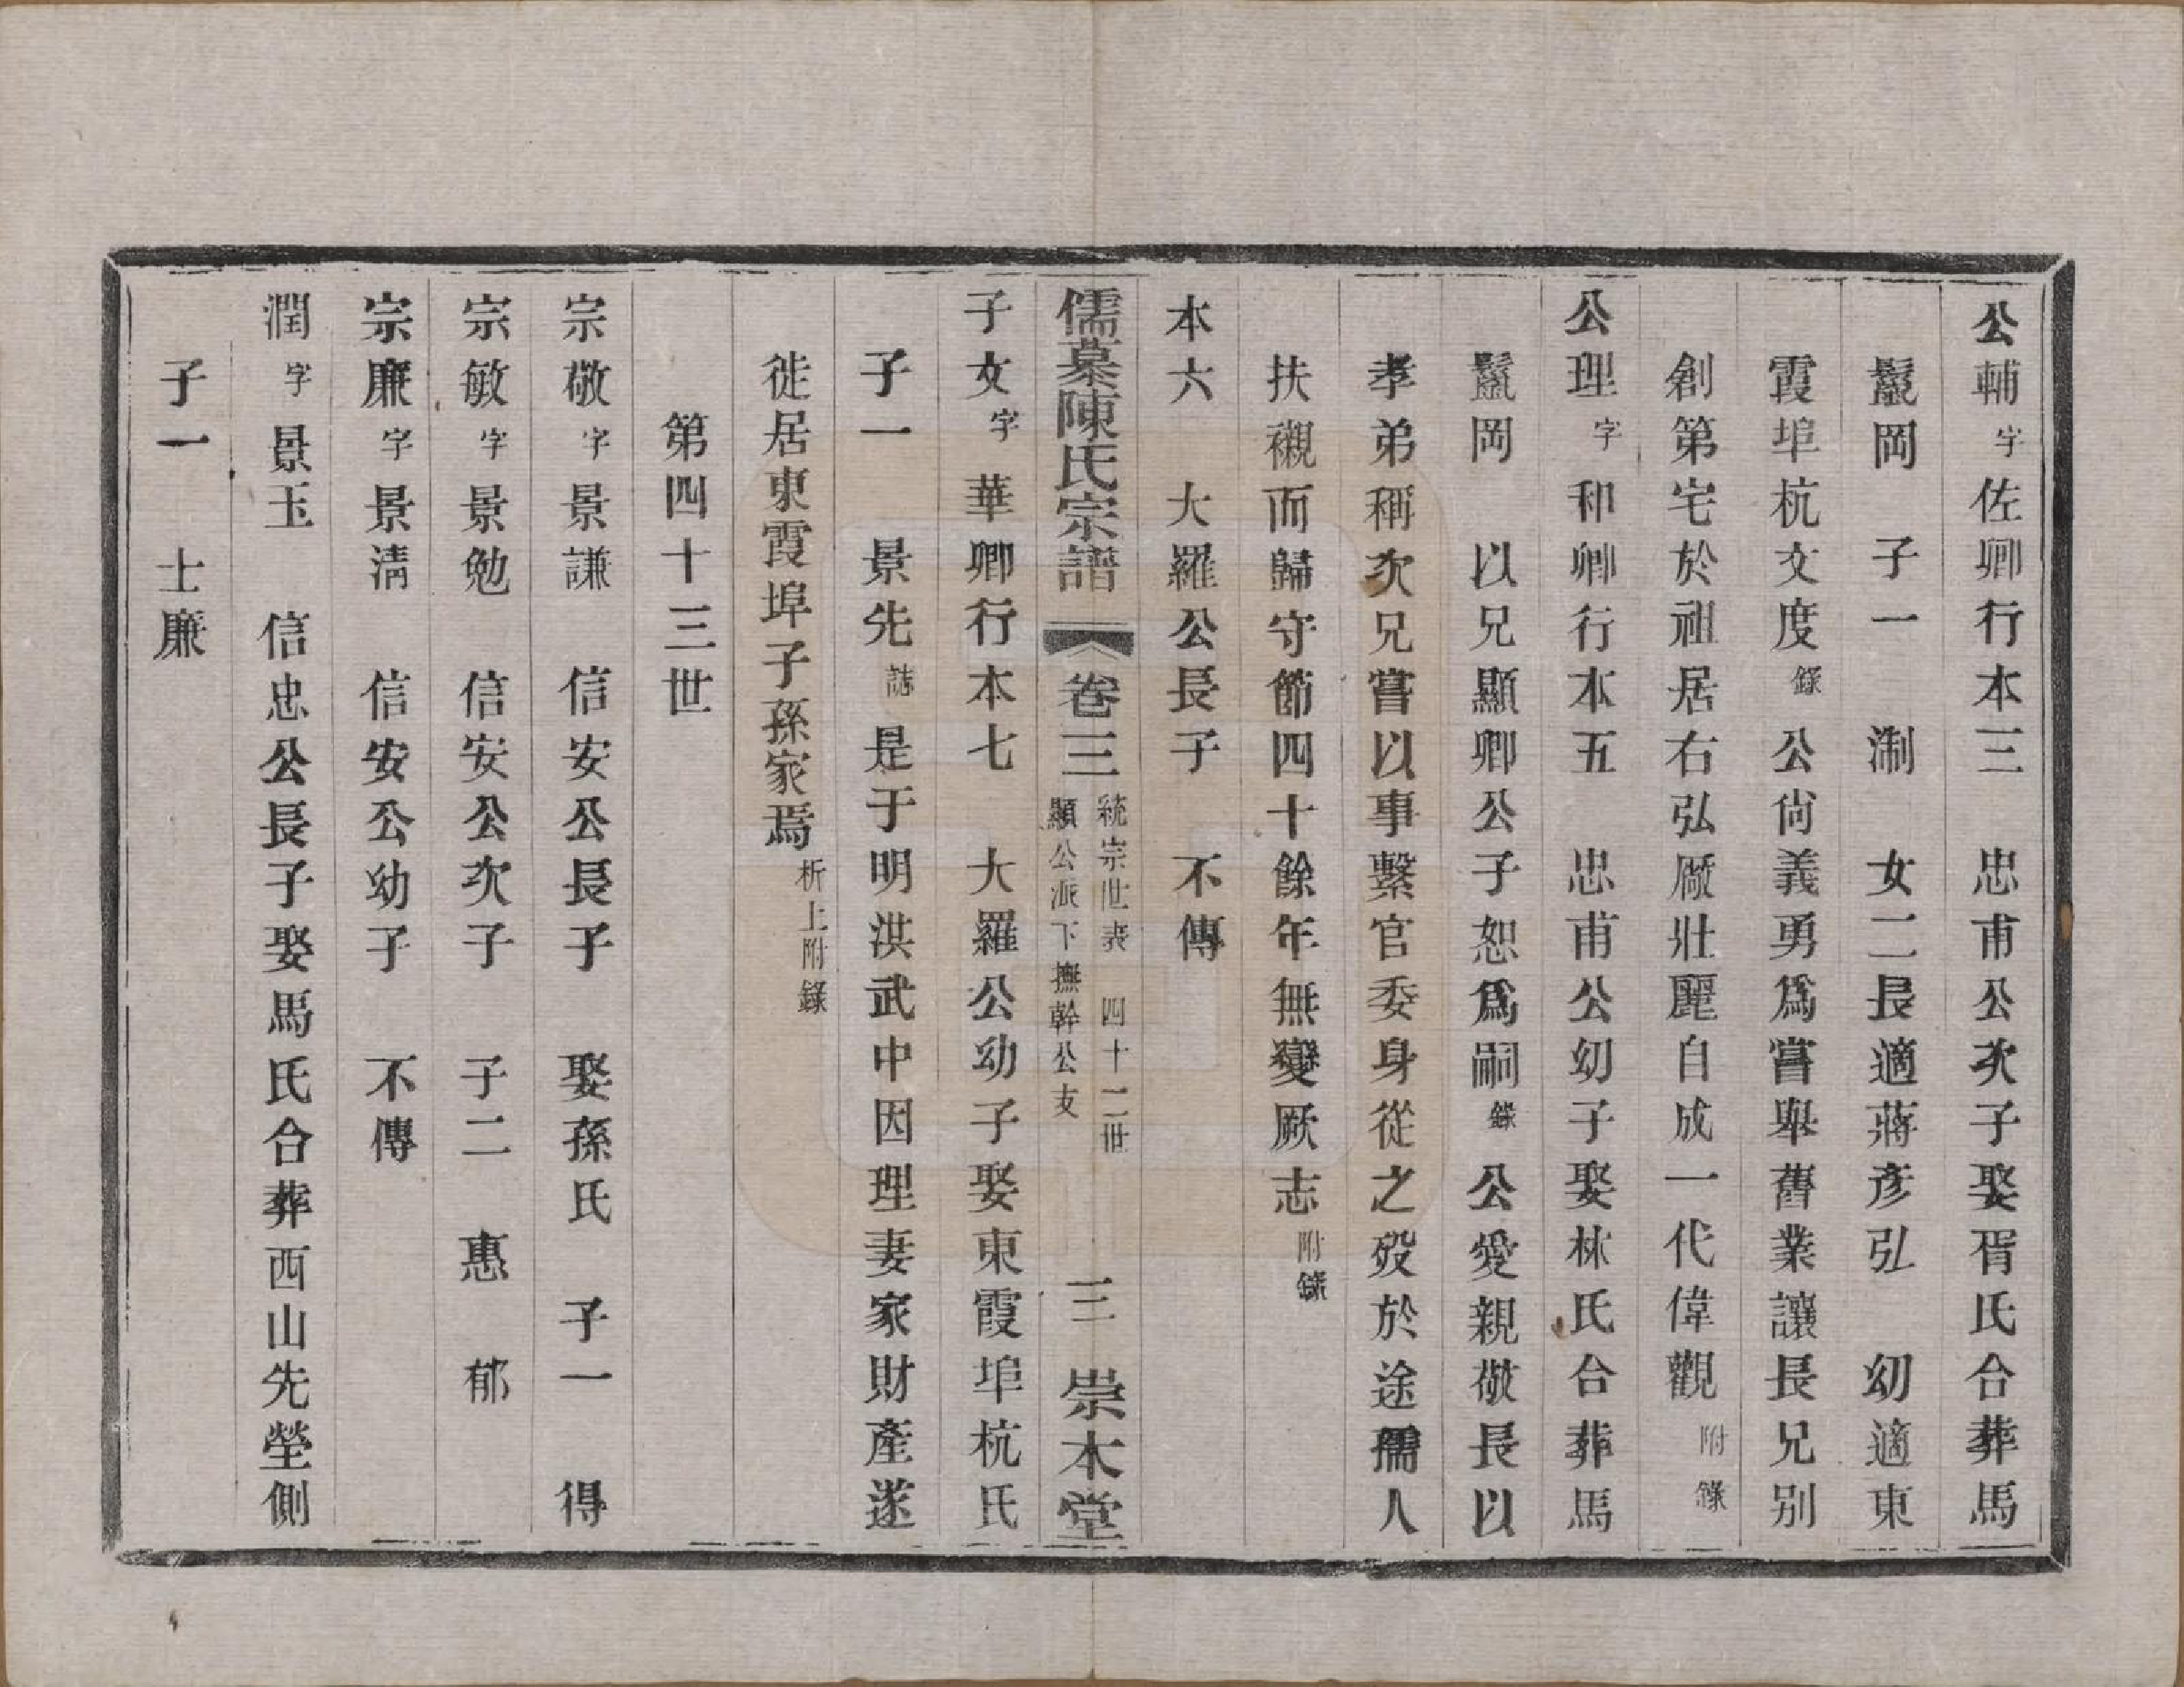 公輔字佐卿行本三　忠甫公次子娶胥氏合葬馬
鬣岡　子一　淛　女二長適蔣彥弘　幼適東
霞埠杭文度錄　公尙義勇爲嘗舉舊業讓長兄别
創第宅於祖居右弘厰壯麗自成一代偉觀附錄
公理字和卿行本五　忠甫公幼子娶林氏合葬馬
鬣岡　以兄顯卿公子恕爲嗣錄　公愛親敬長以
孝弟稱次兄嘗以事繫官委身從之歿於途孺人
扶襯而歸守節四十餘年無變厥志附錄
本六　大羅公長子　不傳
儒墓陳氏宗譜　卷三　統宗世表　四十二世　顯公派下撫幹公支　三　崇本堂
子文字　華卿行本七　大羅公幼子娶東霞埠杭氏
子一　景先誌　是于明洪武中因理妻家財產遂
徙居東霞埠子孫家焉析上附錄
第四十三世
宗敬字景謙　信安公長子　娶孫氏　子一　得
宗敏字景勉　信安公次子　子二　惠　郁
宗廉字景淸　信安公幼子　不傳
潤字景玉　信忠公長子娶馬氏合葬西山先塋側
子一　士廉